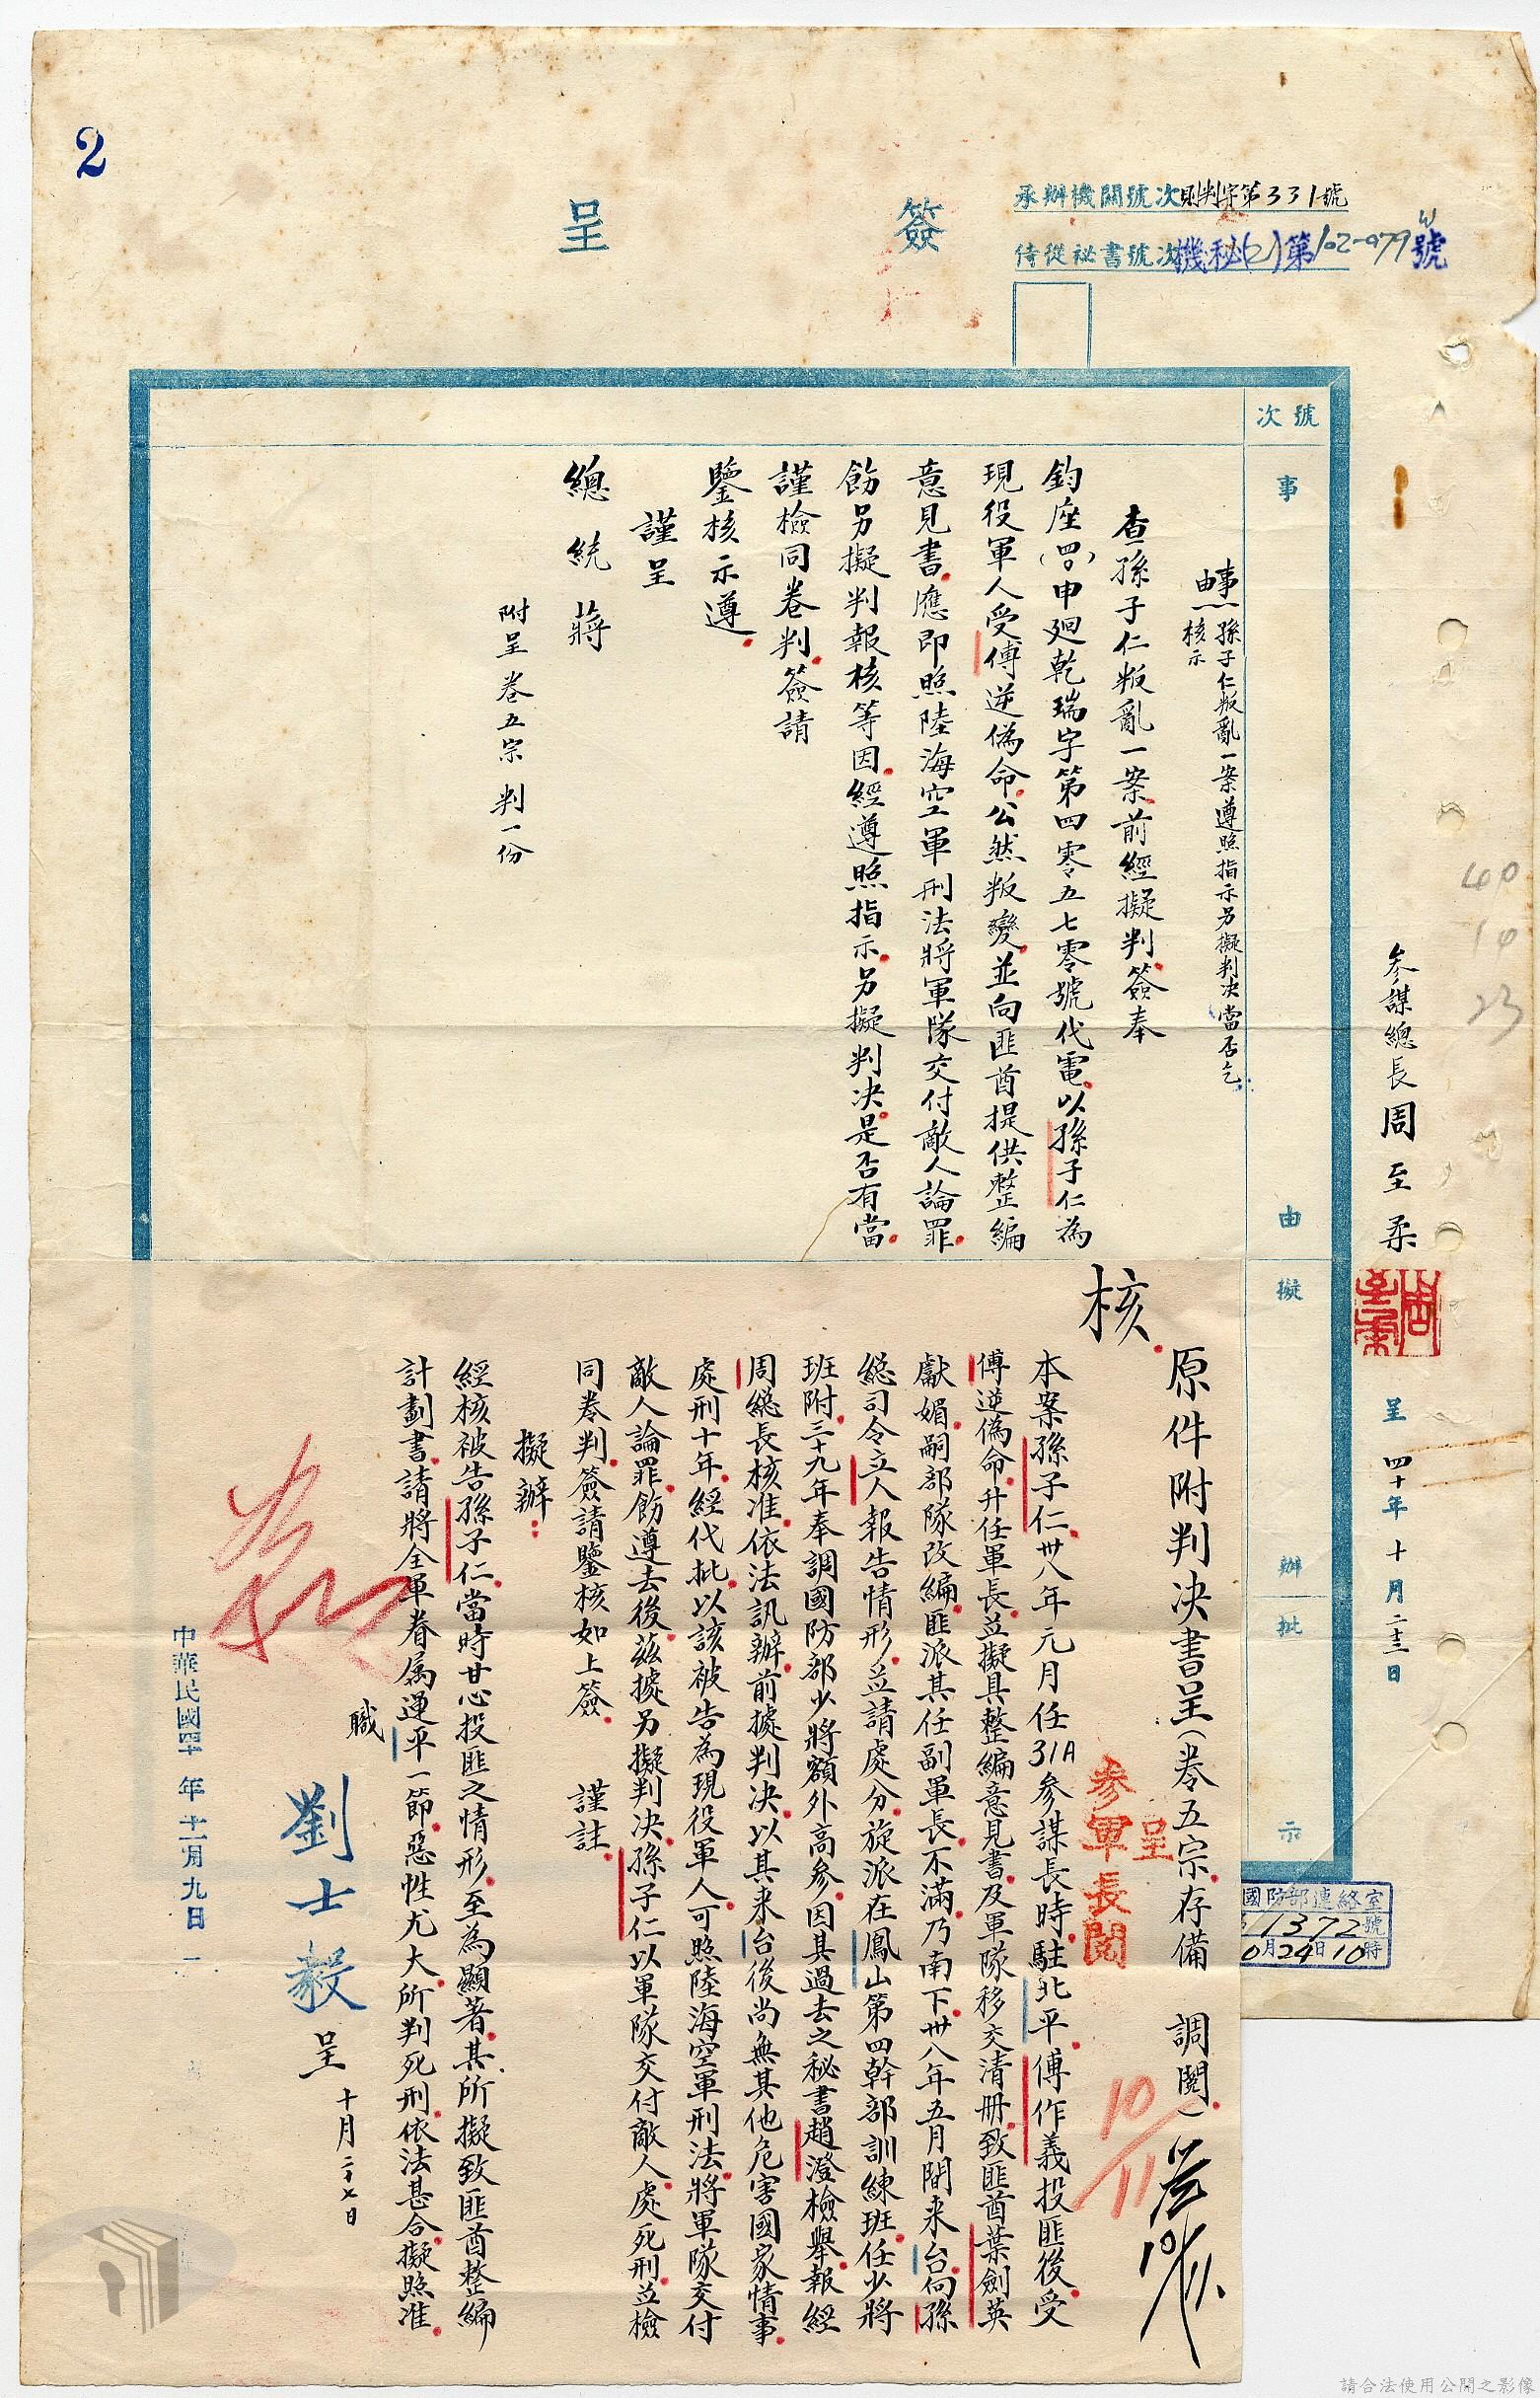 2
簽呈
承辦機關號次則判字第331號
侍從祕書號次機秘(2)第102-079號
號次
事由
擬辦
批示
事由：孫子仁叛亂一案遵照指示另擬判決當否乞
核示
查孫子仁叛亂一案前經擬判簽奉
鈞座(四〇)申迴乾瑞字第四零五七零號代電以孫子仁為
現役軍人受傅逆偽命公然叛變並向匪酋提供整編
意見書應即照陸海空軍刑法將軍隊交付敵人論罪
飭另擬判報核等因經遵照指示另擬判決是否有當
謹檢同卷判簽請
鑒核示遵
謹呈
總統蔣
附呈卷五宗 判一份
參謀總長周至柔
呈 四十年十月二十三日
40
10
23
國防部連絡室
1372號
月24日10時
核
原件附判決書呈(卷五宗存備調閱)
呈
參軍長閱
10/11
10/11
本案孫子仁卅八年元月任31A參謀長時駐北平傅作義投匪後受
傅逆偽命升任軍長並擬具整編意見書及軍隊移交清冊致匪酋葉劍英
獻媚嗣部隊改編匪派其任副軍長不滿乃南下卅八年五月間來台向孫
總司令立人報告情形並請處分旋派在鳳山第四幹部訓練班任少將
班附三十九年奉調國防部少將額外高參因其過去之秘書趙澄檢舉報經
周總長核准依法訊辦前據判決以其來台後尚無其他危害國家情事
處刑十年經代批以該被告為現役軍人可照陸海空軍刑法將軍隊交付
敵人論罪飭遵去後茲據另擬判決孫子仁以軍隊交付敵人處死刑並檢
同卷判簽請鑒核如上簽 謹註
擬辦：
經核被告孫子仁當時甘心投匪之情形至為顯著其所擬致匪酋整編
計劃書請將全軍眷屬運平一節惡性尤大所判死刑依法甚合擬照准
職劉士毅呈 十月二十七日
中華民國四十年十一月九日
請合法使用公開之影像